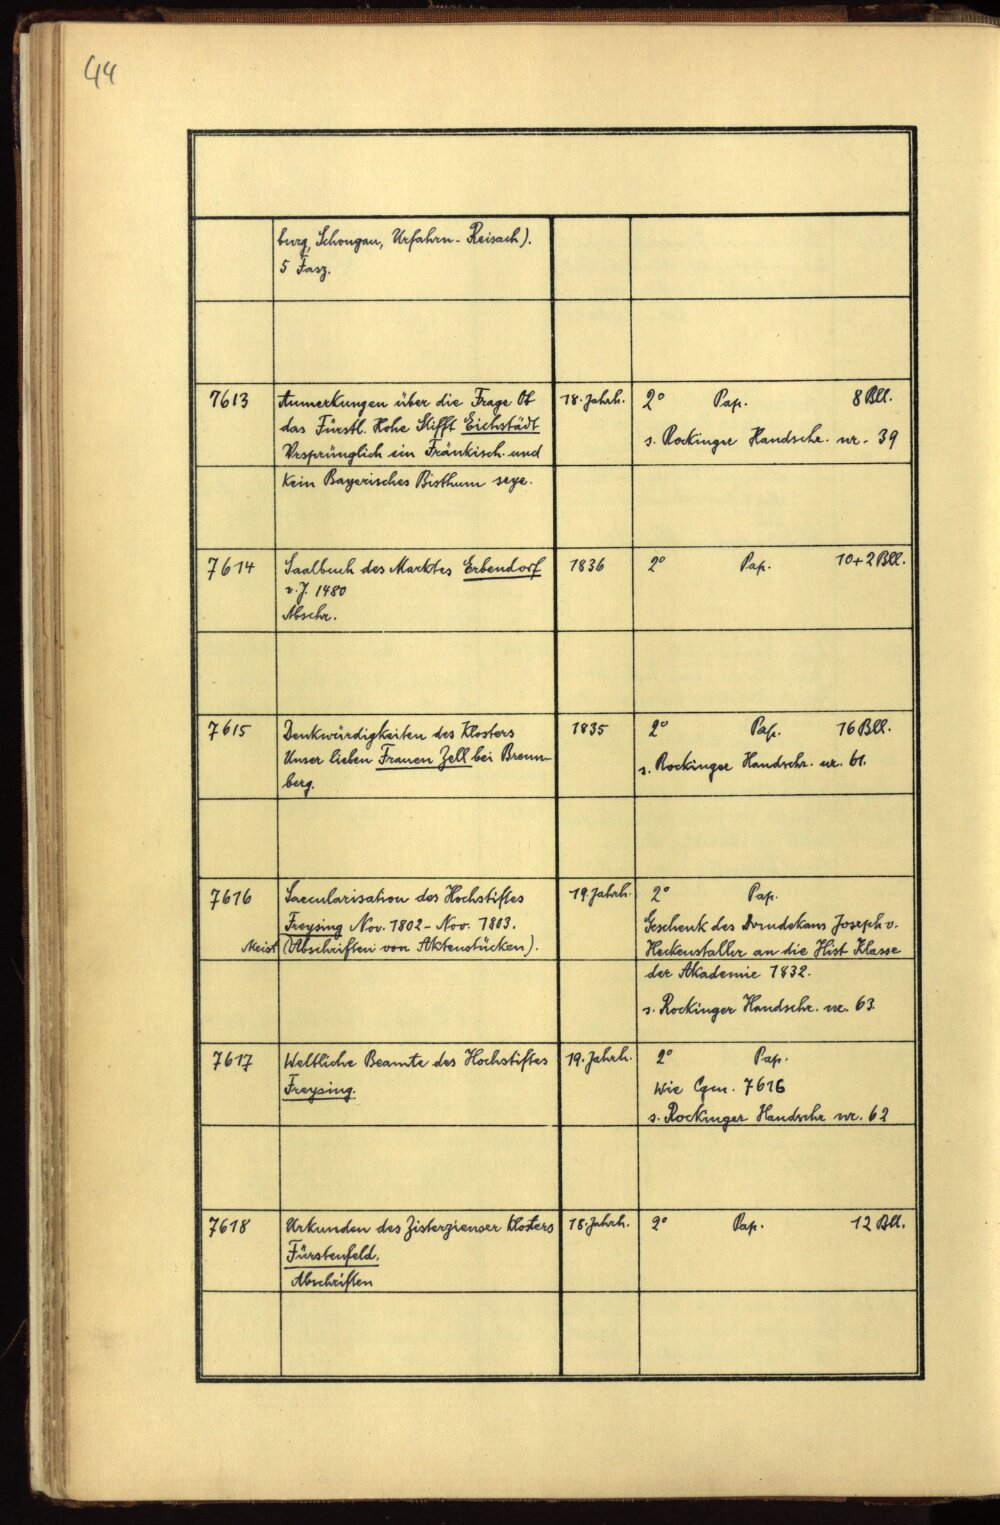 44
burg, Schongau, Urfahrn - Reisach).
5 Fasz.
7613 Anmerkungen über die Frage Ob 18. Jahrh. 2° Pap. 8 Bll.
das Fürstl. Hohe Stifft Eichstädt s. Rockinger Handschr. nr. 39
Vrsprünglich ein Fränkisch. und
kein Bayerisches Bisthum seye.
7614 Saalbuch des Marktes Erbendorf 1836 2° Pap. 10+2 Bll.
v. J. 1480
Abschr.
7615 Denkwürdigkeiten des Klosters 1835 2° Pap. 16 Bll.
Unser lieben Frauen Zell bei Brenn- s. Rockinger Handschr. nr. 61.
berg.
7616 Saecularisation des Hochstiftes 19. Jahrh. 2° Pap.
Freysing Nov. 1802 - Nov. 1803. Geschenk des Domdekans Joseph v.
Meist (Abschriften von Aktenstücken). Heckenstaller an die Hist Klasse
der Akademie 1832.
s. Rockinger Handschr. nr. 63.
7617 Weltliche Beamte des Hochstiftes 19. Jahrh. 2° Pap.
Freysing. Wie Cgm. 7616
s. Rockinger Handschr nr. 62
7618 Urkunden des Zisterzienser Klosters 18. Jahrh. 2° Pap. 12 Bll.
Fürstenfeld.
Abschriften